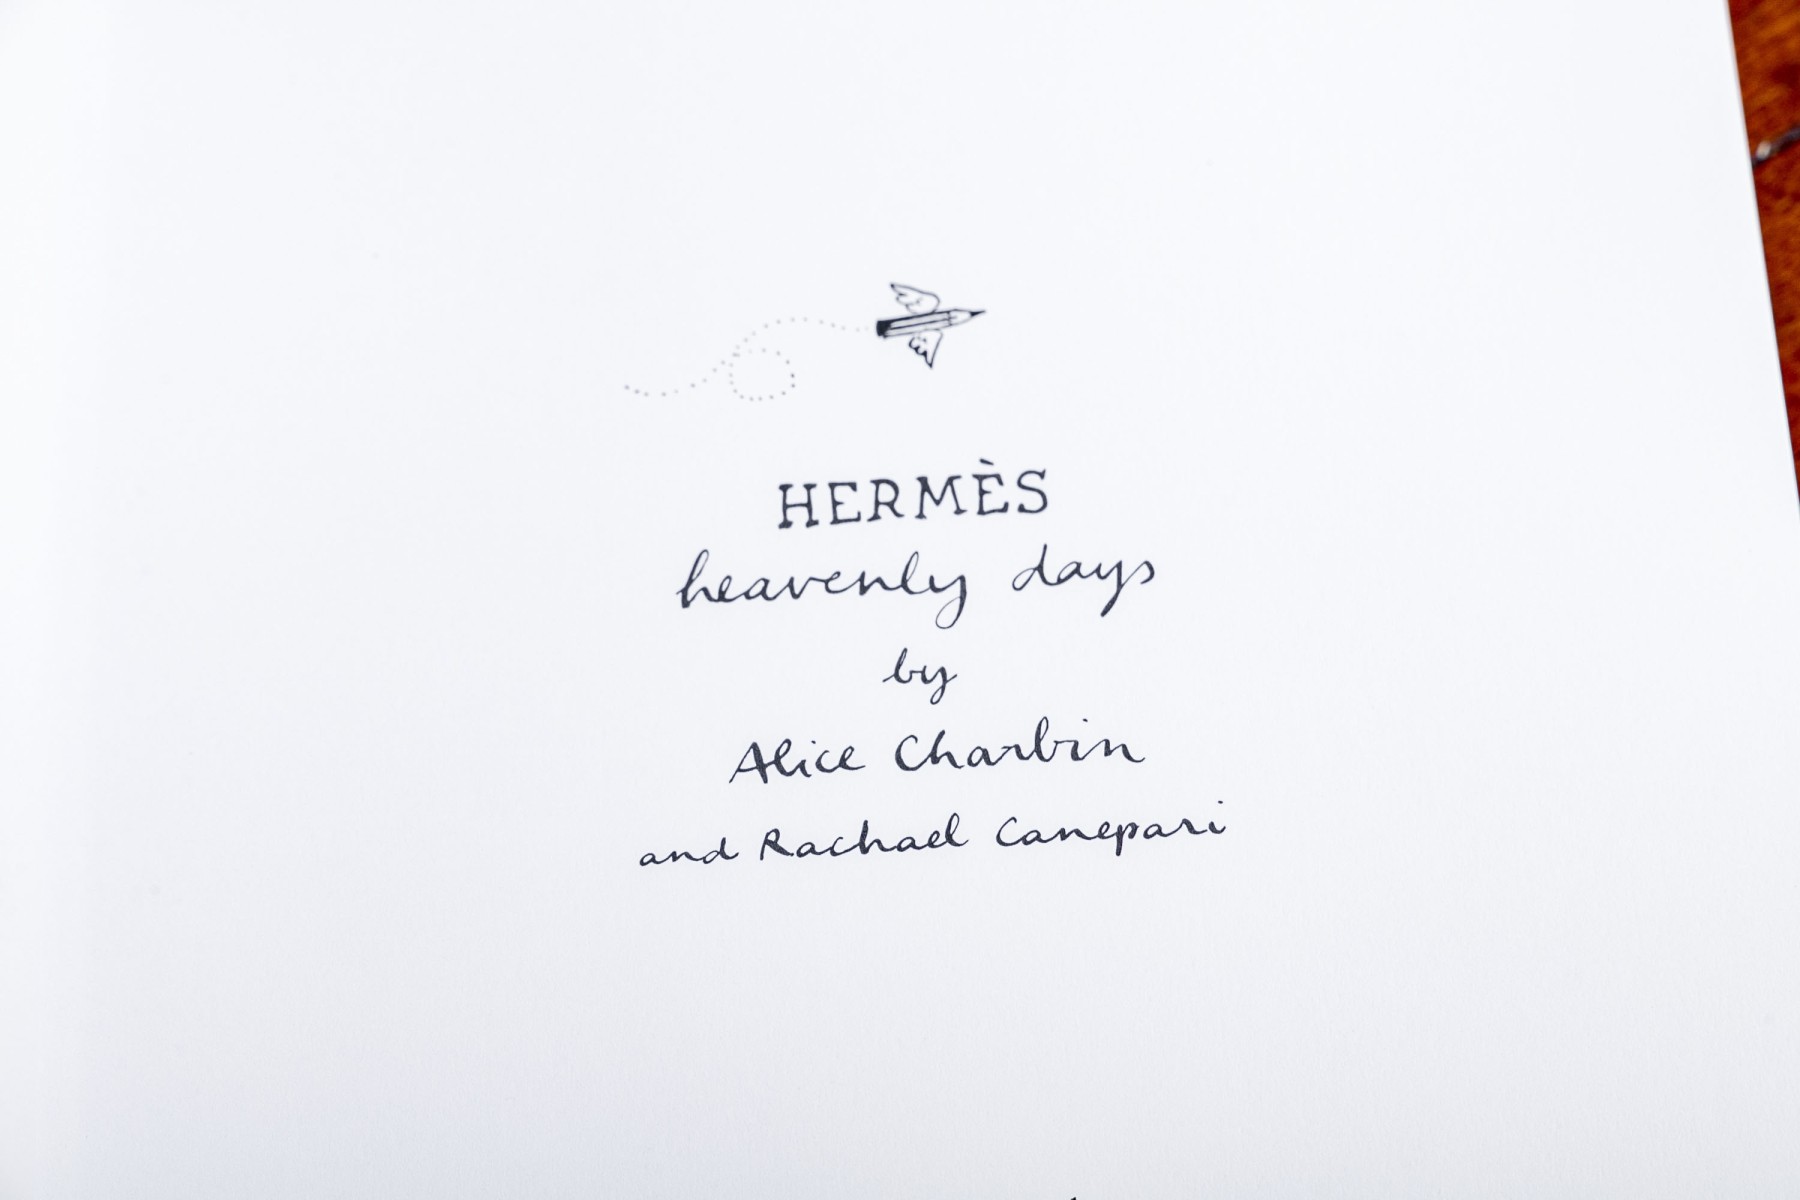 HERMÈS
heavenly days
by
Alice Charbin
and Rachael Canepari